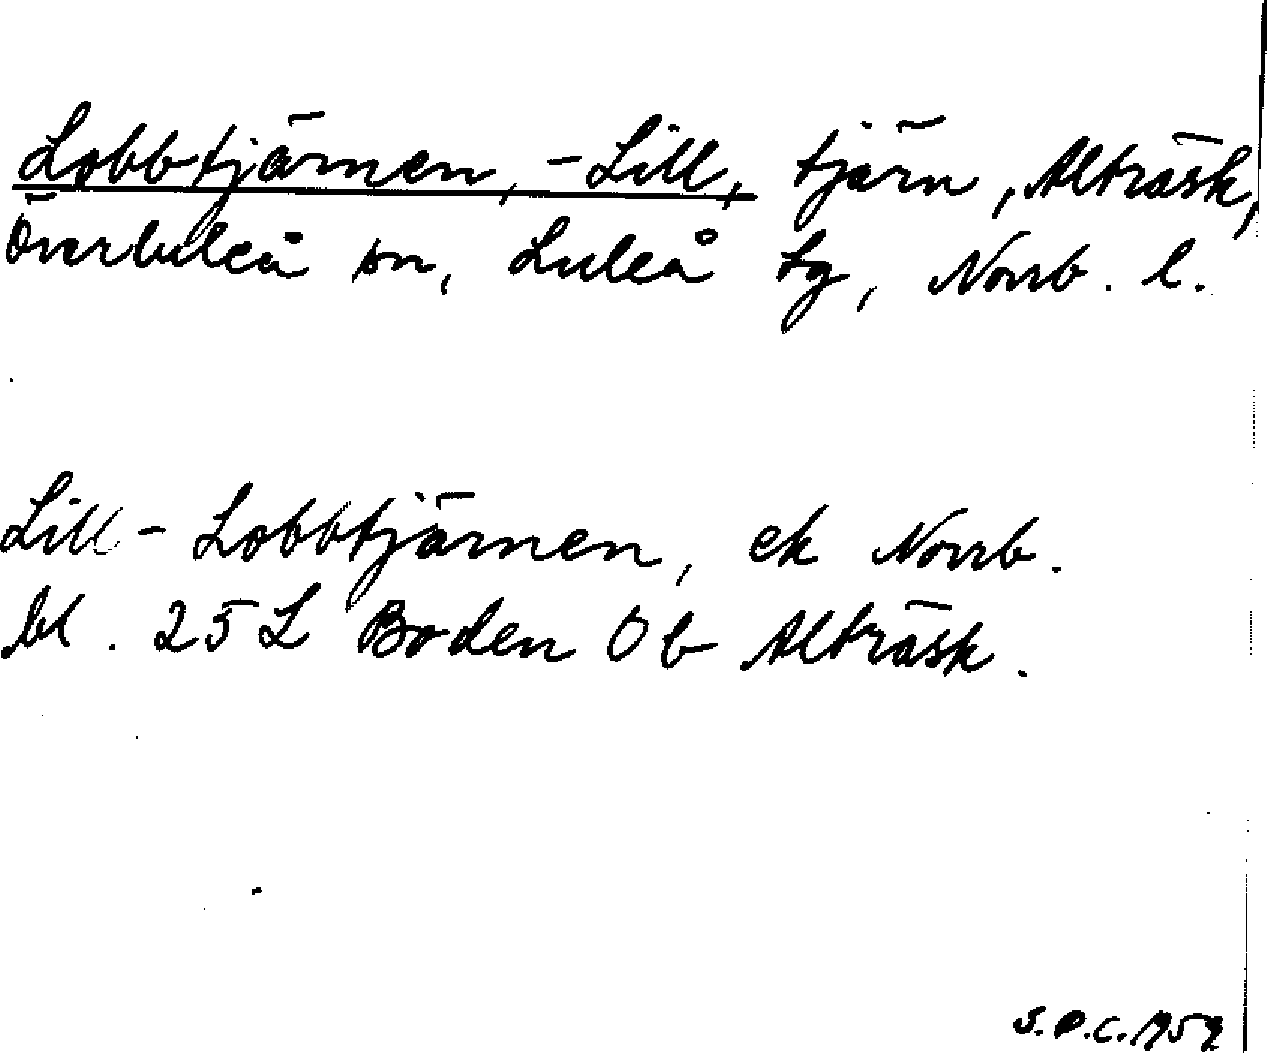 Lobbtjärnen, -Lill, tjärn, Alträsk,
Överluleå sn, Luleå tg, Norrb. l.
Lill-Lobbtjärnen, ek Norrb.
bl. 25 L Boden Ob Alträsk.
S.P.C. 1959